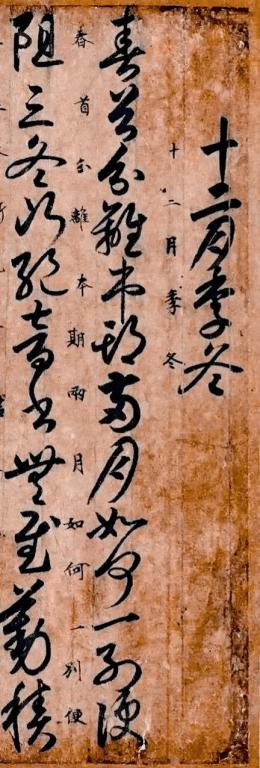 十二月季冬
十二月季冬
春首分離本期兩月如何一別便
春首分離本期兩月如何一別便
阻三冬行絕音書無慰勤積